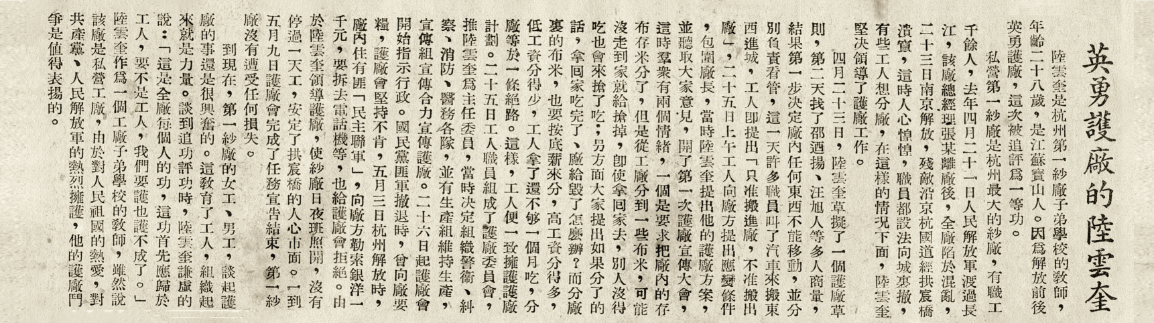 英勇護廠的陸雲奎
陸雲奎是杭州第一紗廠子弟學校的教師，
年齡二十八歲，是江蘇寶山人。因爲解放前後
英勇護廠，這次被追評爲一等功。
私營第一紗廠是杭州最大的紗廠，有職工
千餘人，去年四月二十一日人民解放軍渡過長
江，該廠總經理張某離廠後，全廠陷於混亂，
二十三日南京解放，殘敵沿京杭國道經拱宸橋
潰竄，這時人心惶惶，職員都設法向城裏撤，
有些工人想分廠，在這樣的情況下面，陸雲奎
堅决領導了護廠工作。
四月二十三日，陸雲奎草擬了一個護廠草
則，第二天找了邵酒揚、汪旭人等多人商量，
結果第一步决定廠內任何東西不能移動，並分
別負責看管，這一天許多職員叫了汽車來搬東
西進城，工人即提出「只准搬進廠，不准搬出
廠」，二十五日上午工人向廠方提出應變條件
，包圍廠長，當時陸雲奎提出他的護廠方案，
並聽取大家意見，開了第一次護廠宣傳大會，
這時羣衆有兩個情緒，一個是要求把廠內的存
布存米分了，但是從工廠分到一些布米，可能
沒走到家就給搶掉，即使拿回家去，別人沒得
吃也會來搶了吃；另方面大家提出如果分了的
話，拿回家吃完了、廠給毀了怎麽辦？而分廠
裏的布米，也要按底薪來分，高工資分得多，
低工資分得少，工人拿了還不够一個月吃，分
廠等於一條絕路。這樣，工人便一致擁護護廠
計劃。二十五日工人職員組成了護廠委員會，
推陸雲奎爲主任委員，當時决定組織警衞、糾
察、消防、醫務各隊，並有生產組維持生產，
宣傳組宣傳合力宣傳護廠。二十六日起護廠會
開始指示行政。國民黨匪軍撤退時，曾向廠要
糧，護廠會堅持不肯，五月三日杭州解放時，
廠內住有匪「民主聯軍」，向廠方勒索銀洋一
千元，要拆去電話機等，也給護廠會拒絕。由
於陸雲奎領導護廠，使紗廠日夜班照開，沒有
停過一天工，安定了拱宸橋的人心市面。一到
五月九日護廠會完成了任務宣告結束，第一紗
廠沒有遭受任何損失。
到現在，第一紗廠的女工、男工，談起護
廠的事還是很興奮的。這敎育了工人，組織起
來就是力量。談到追功評功時，陸雲奎謙虛的
說：「這是全廠每個人的功，這功首先應歸於
工人，要不是工人，我們要護也護不成了。」
陸雲奎作爲一個工廠子弟學校的教師，雖然說
該廠是私營工廠，由於對人民祖國的熱愛，對
共產黨、人民解放軍的熱烈擁護，他的護廠鬥
爭是值得表揚的。